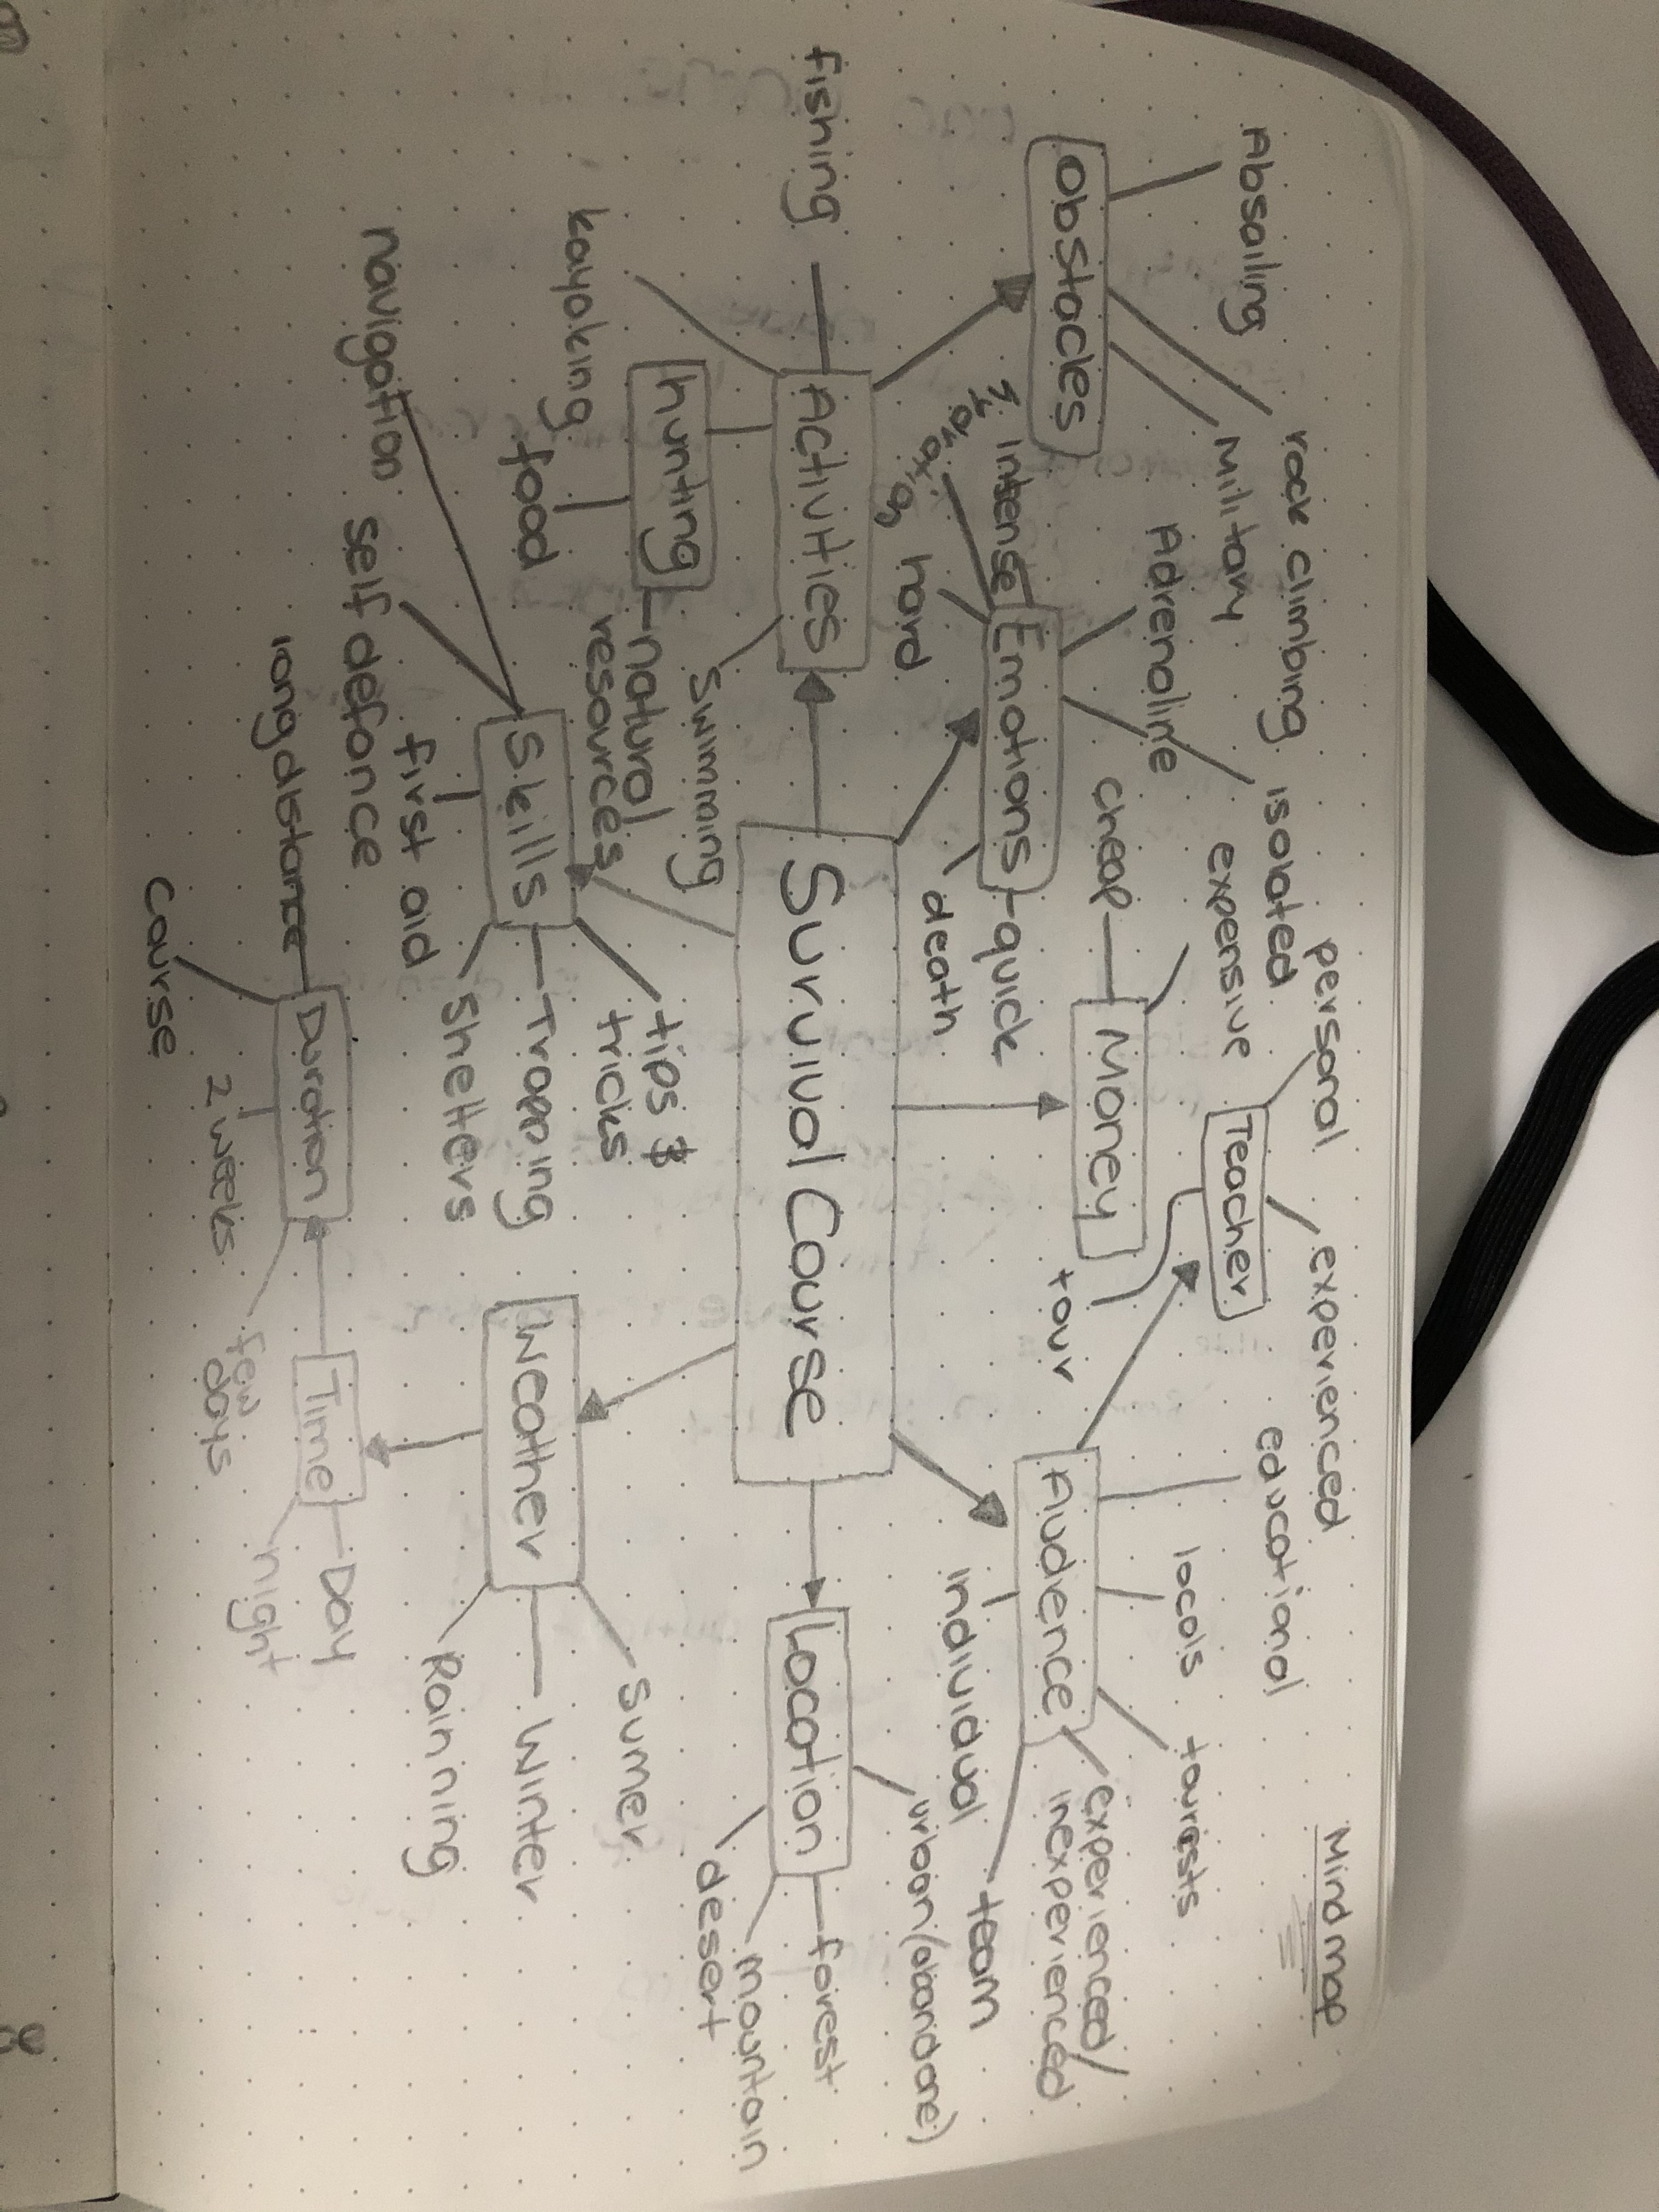 Mind map
Absailing
rock climbing
Military
Obstacles
Adrenaline
isolated
intense
hard
Emotions
quick
death
personal
experienced
Teacher
expensive
cheap
Money
tour
educational
locals
tourists
Audience
experienced/
inexperienced
individual
team
fishing
Activities
Swimming
kayaking
hunting
food
natural
resources
Survival Course
Location
urban(abandone)
forest
mountain
desert
navigation
self defence
first aid
Skills
tips &
tricks
Trapping
Shelters
Weather
Sumer
Winter
Raining
long distance
Course
Duration
2 weeks
few
days
Time
Day
night